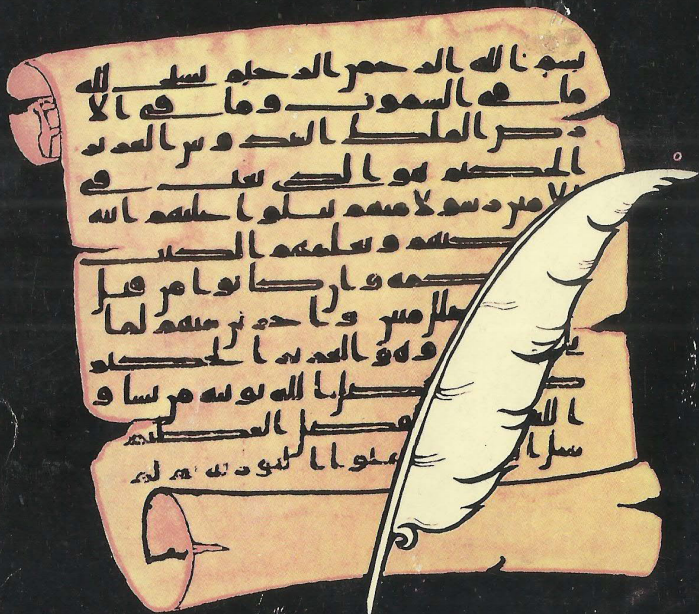 بسم الله الرحمن الرحيم يسبح لله
ما في السموت وما في الا
رض الملك القدوس العزيز
الحكيم هو الذي بعث في
الامين رسولا منهم يتلوا عليهم ايته
كيهم ويعلمهم الكتب
كمه وان كانوا من قبل
ضلل مبين واخرين منهم لما
وهو العزيز الحكيم
فضل الله يوتيه من يشا و
الله الفضل العظيم
مثل ا ملوا التوريه ثم لم